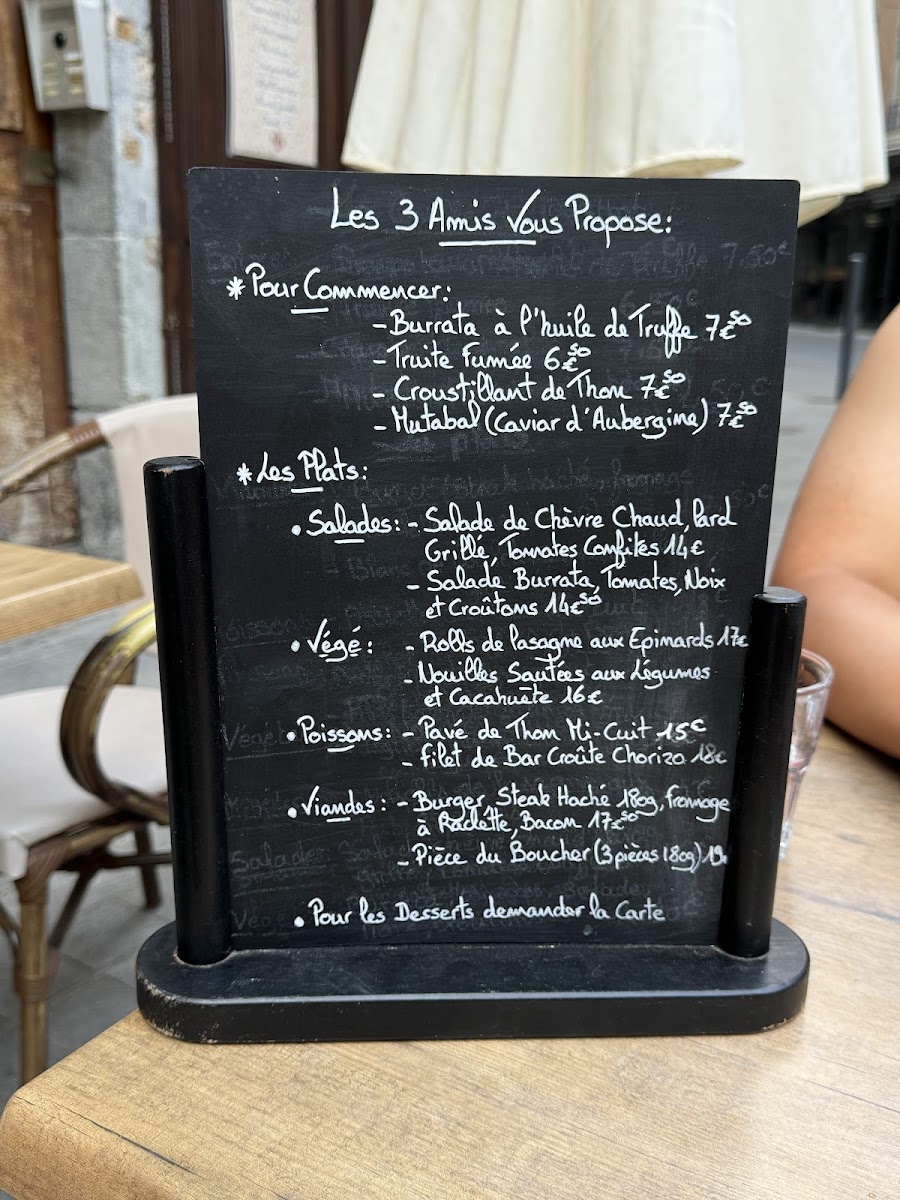 Les 3 Amis Vous Propose:
* Pour Commencer:
- Burrata à l'huile de Truffe 7€50
- Truite Fumée 6€50
- Croustillant de Thon 7€50
- Mutabal (Caviar d'Aubergine) 7€50
* Les Plats:
• Salades: - Salade de Chèvre Chaud, Lard
Grillé, Tomates Confites 14€
- Salade Burrata, Tomates, Noix
et Croûtons 14€50
• Végé: - Rolls de lasagne aux Epinards 17€
- Nouilles Sautées aux Légumes
et Cacahuète 16€
• Poissons: - Pavé de Thon Mi-Cuit 15€
- Filet de Bar Croûte Chorizo 18€
• Viandes: - Burger, Steak Haché 180g, fromage
à Raclette, Bacon 17€50
- Pièce du Boucher (3 pièces 180g) 19
• Pour les Desserts demander la Carte